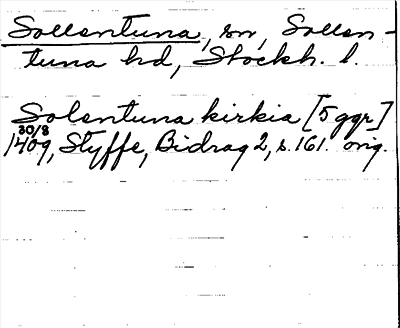 Sollentuna, sn, Sollen-
tuna hd, Stockh. l.
Solentuna kirkia [5 ggr]
30/8
1409, Styffe, Bidrag 2, s. 161. orig.